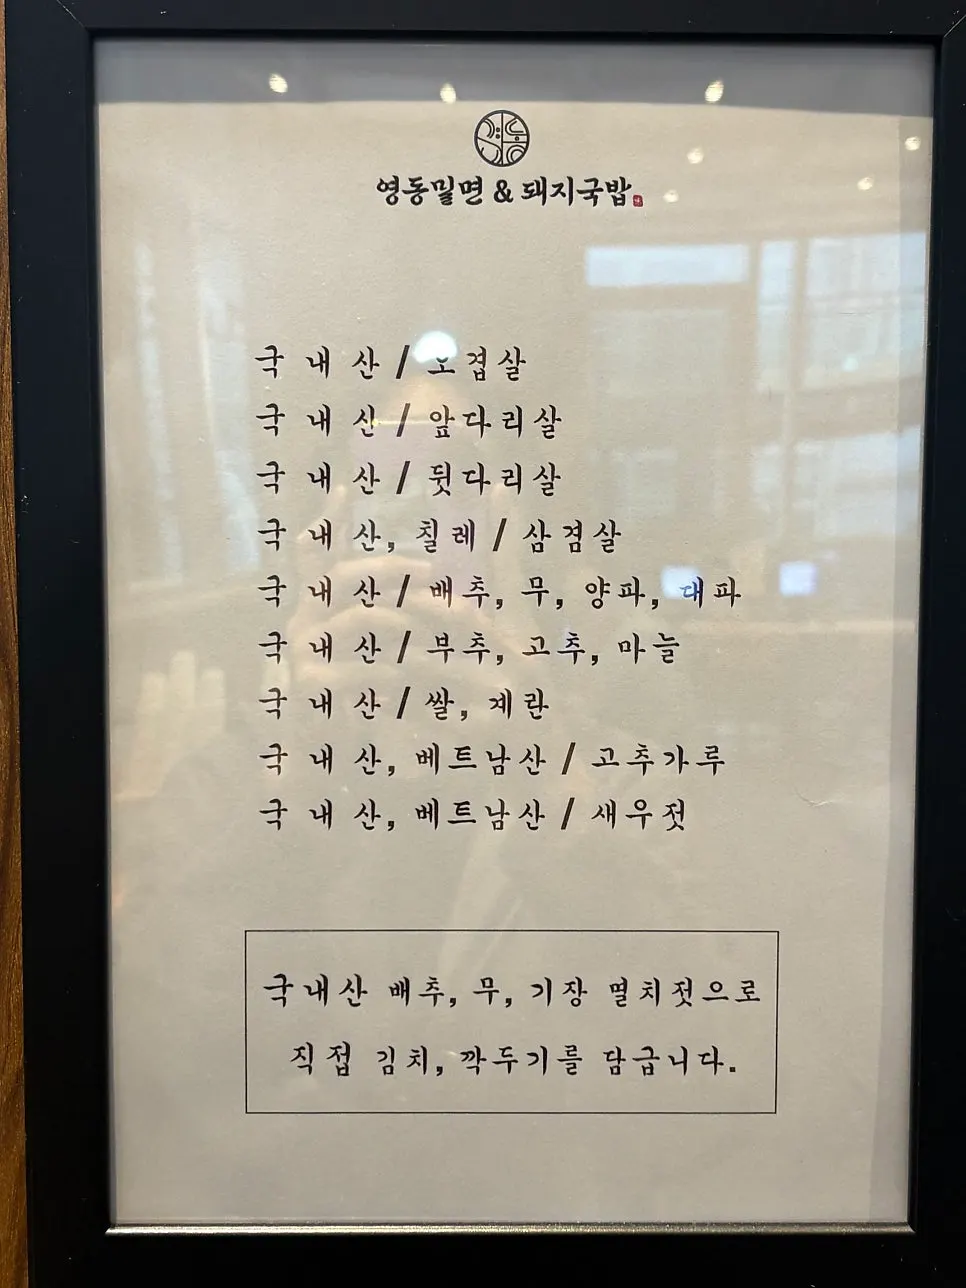 영동밀면 & 돼지국밥
국내산 / 오겹살
국내산 / 앞다리살
국내산 / 뒷다리살
국내산, 칠레 / 삼겹살
국내산 / 배추, 무, 양파, 대파
국내산 / 부추, 고추, 마늘
국내산 / 쌀, 계란
국내산, 베트남산 / 고추가루
국내산, 베트남산 / 새우젓
국내산 배추, 무, 기장 멸치젓으로
직접 김치, 깍두기를 담급니다.